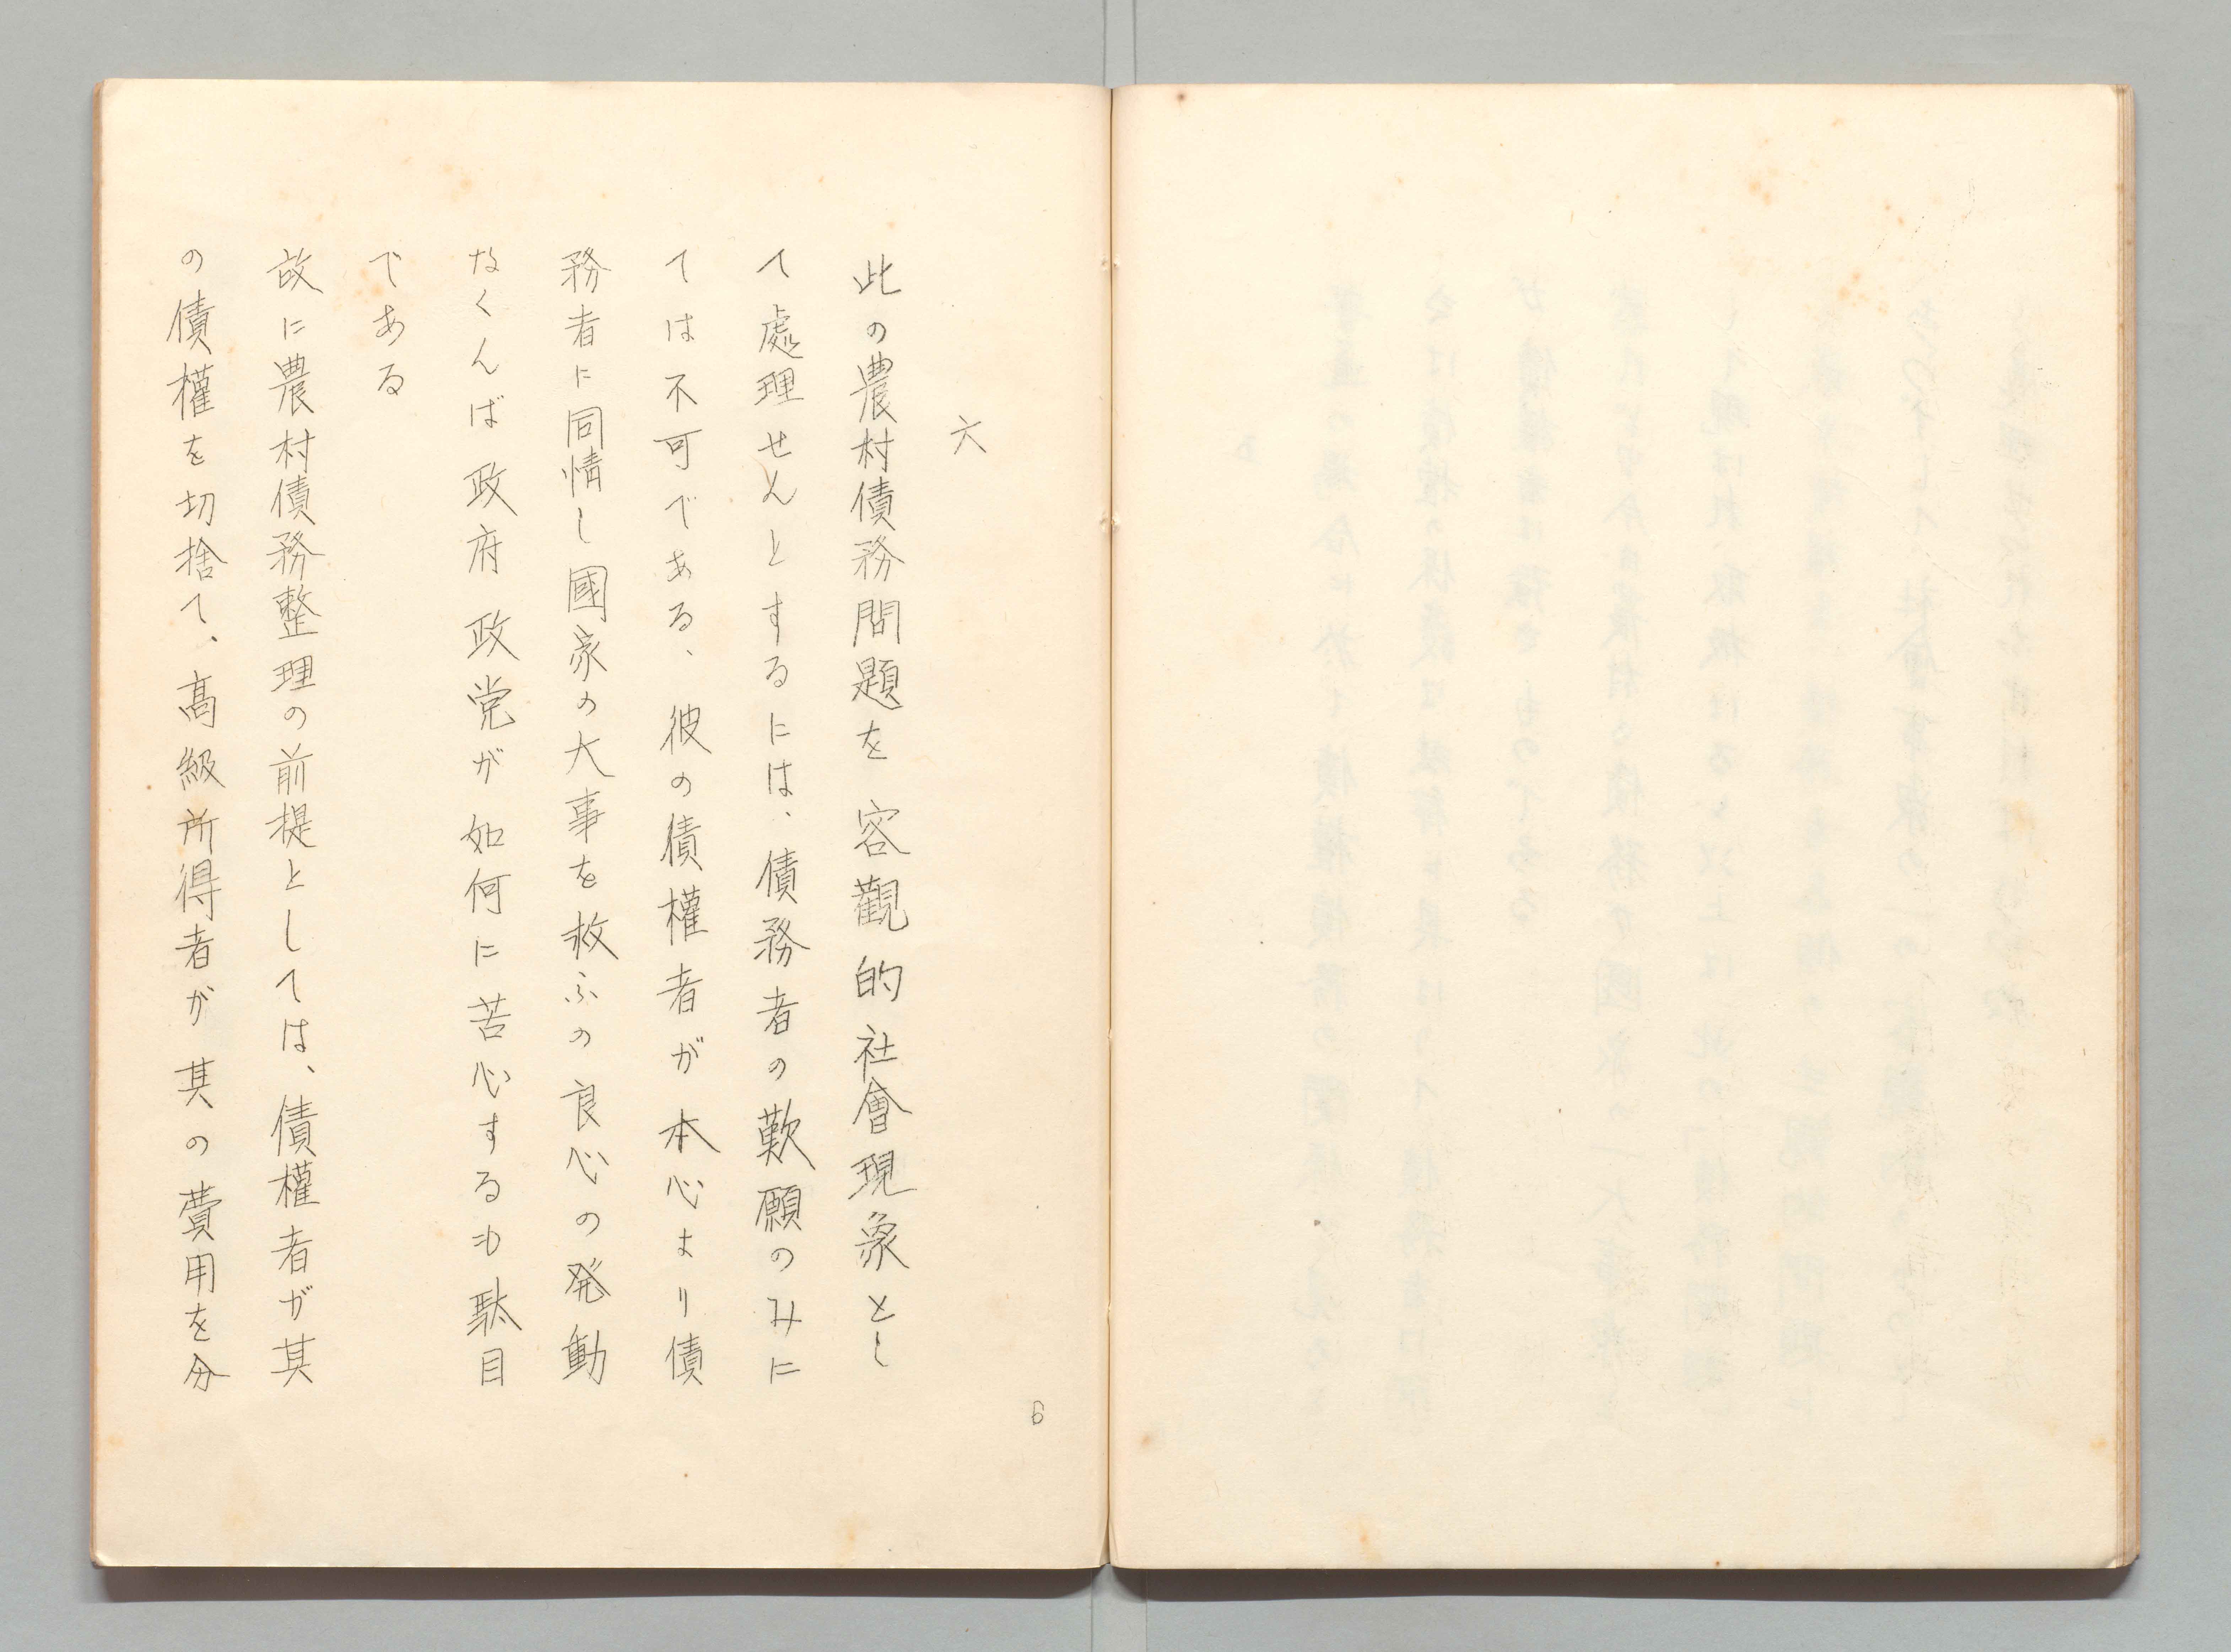 六
此の農村債務問題を容觀的社會現象とし
て處理せんとするには、債務者の歎願のみに
ては不可である、彼の債權者が本心より債
務者に同情し國家の大事を救ふの良心の発動
なくんば政府政党が如何に苦心するも駄目
である
故に農村債務整理の前提としては、債權者が其
の債權を切捨て、高級所得者が其の費用を分
6